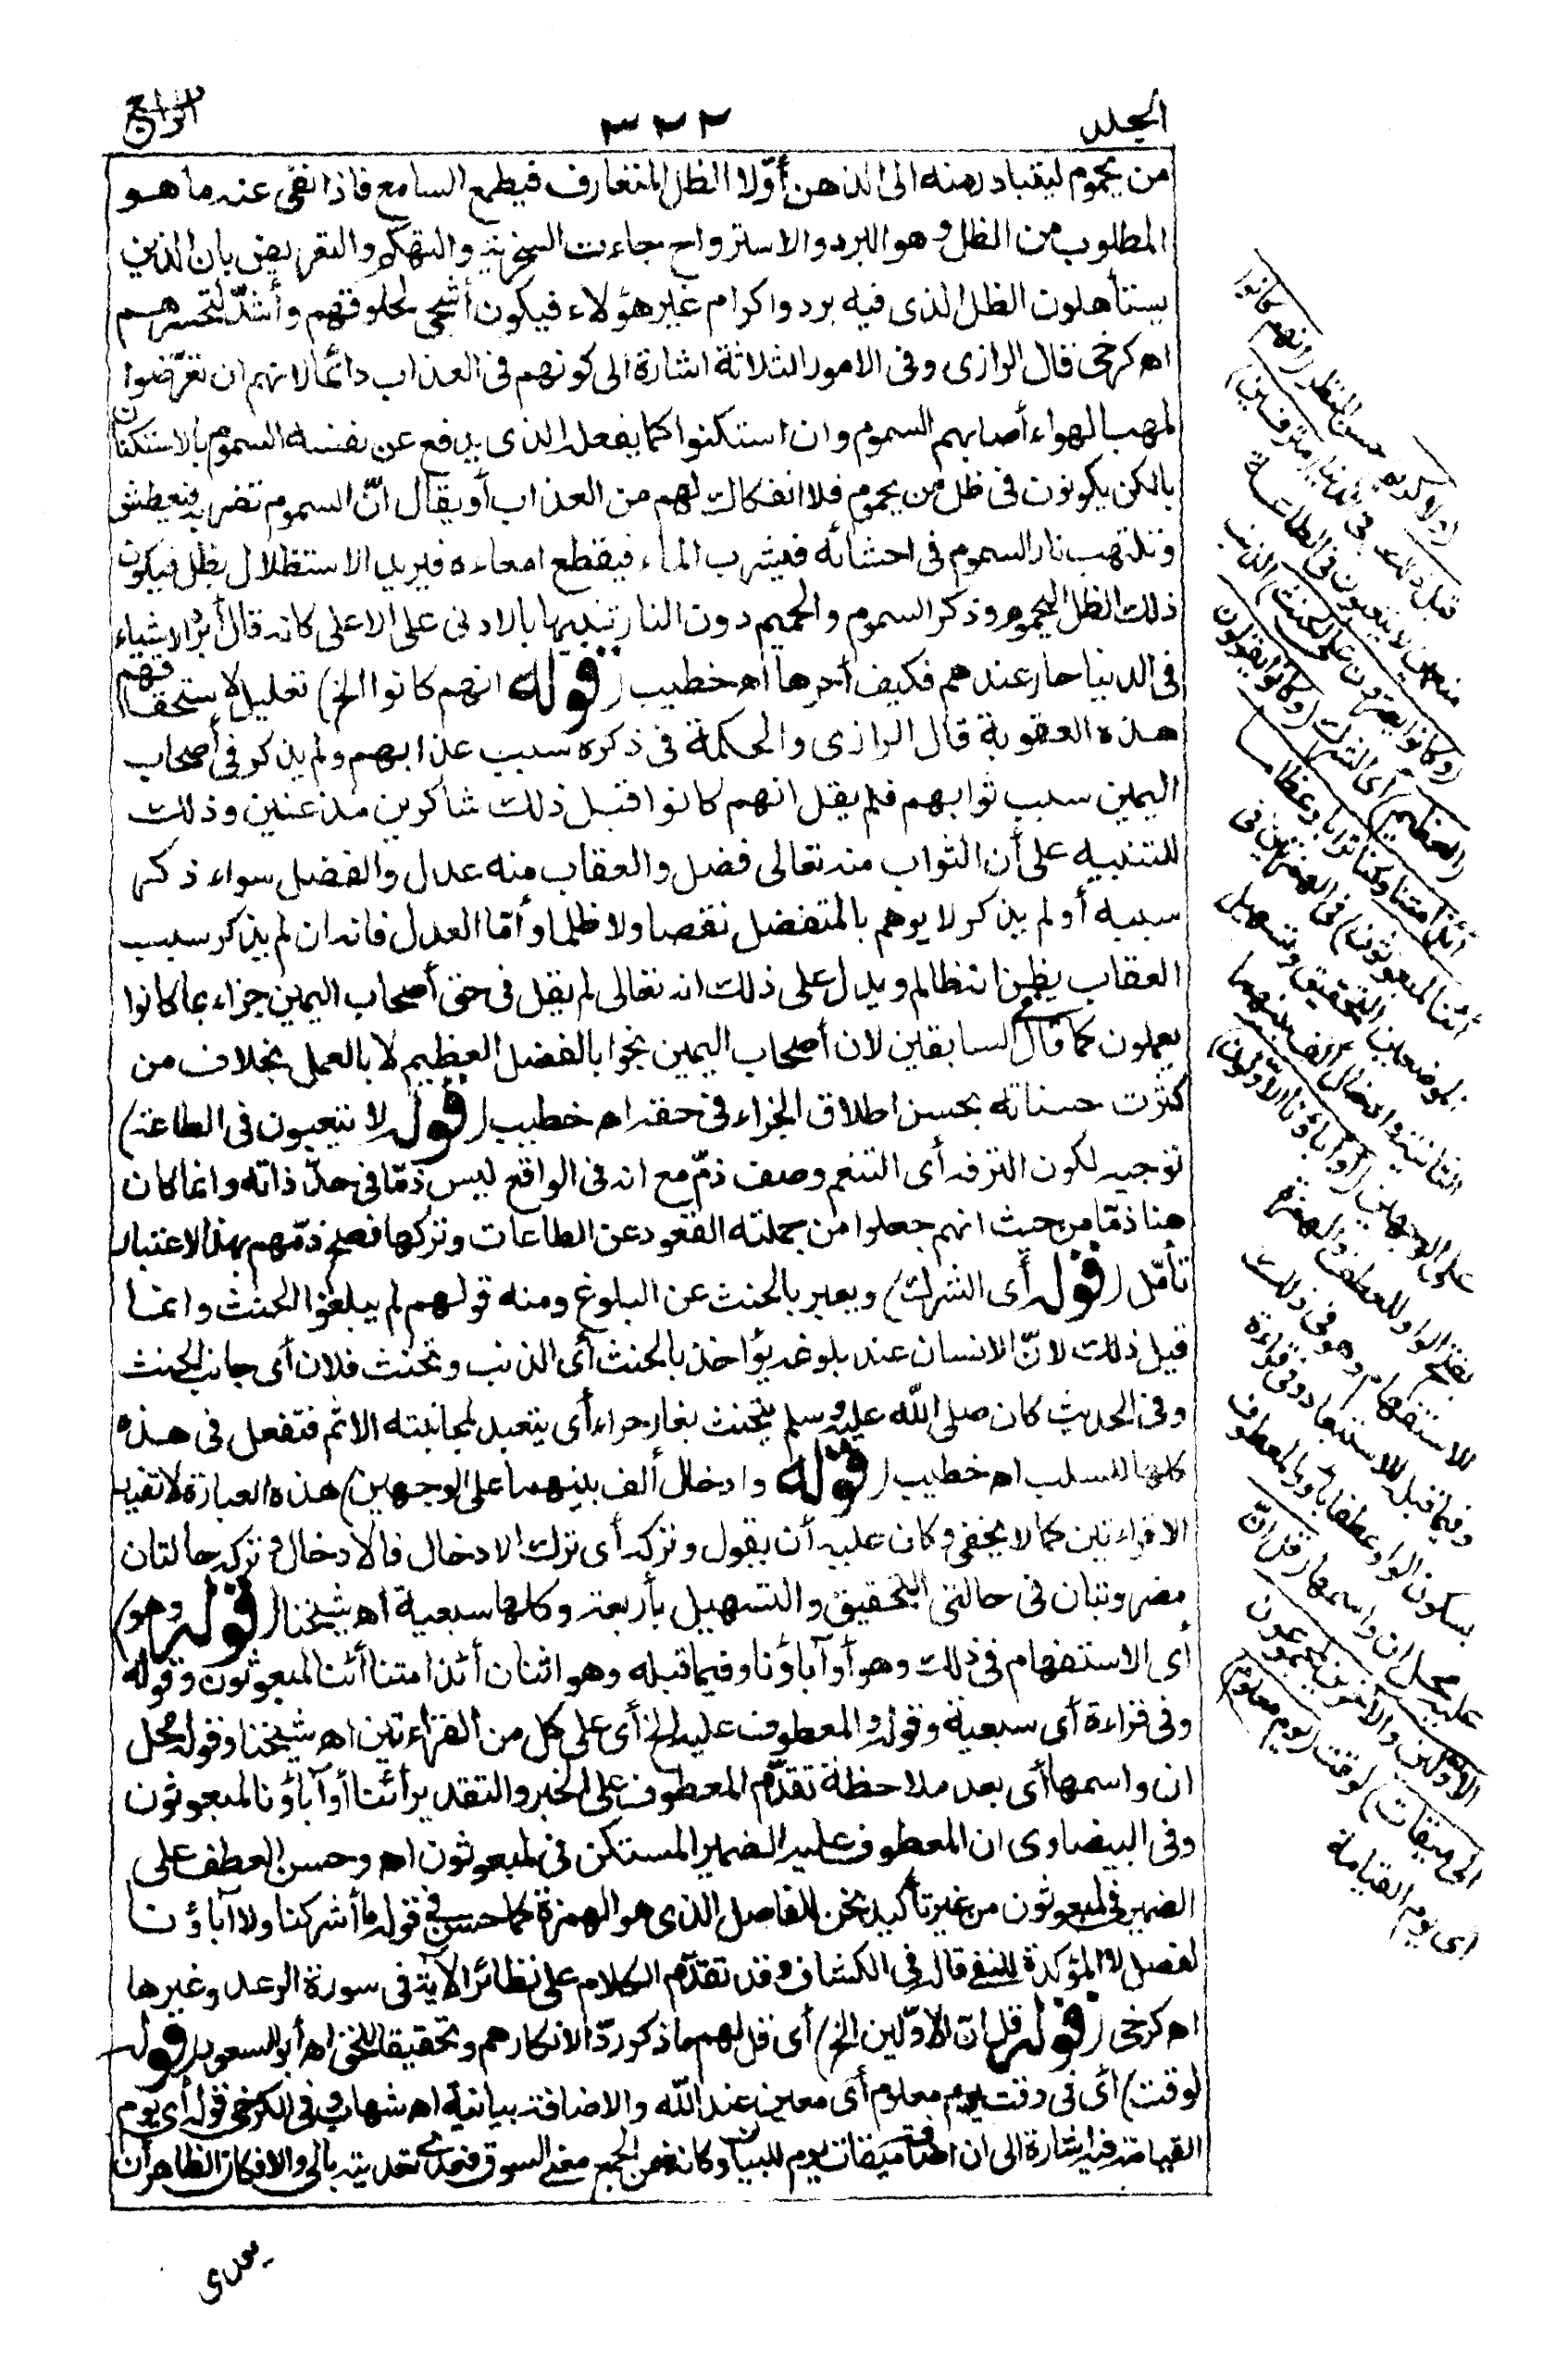 الجلد
٣٢٢
الرابع
من يحموم ليتبادر منه الى الذهن أوّلا الظل المتعارف فيطمع السامع فاذا نفى عنه ما هو
المطلوب من الظل وهو البرد والاسترواح جاءت السخرية والتهكم والتعريض بان الذين
يستأهلون الظل الذى فيه برد واكرام غير هؤلاء فيكون أشجى لحلوقهم وأشدّ لتحسرهم
اه كرخى قال الرازى وفى الامور الثلاثة اشارة الى كونهم فى العذاب دائما لانهم ان تعرّضوا
لمهب الهواء أصابهم السموم وان استكنوا كما يفعل الذى يدفع عن نفسه السموم بالاستكنان
بالكن يكونون فى ظل من يحموم فلا انفكاك لهم من العذاب أو يقال انّ السموم تضربه فيعطش
وتلتهب نار السموم فى احشائه فيشرب الماء فيقطع امعاءه فيريد الاستظلال بظل فيكون
ذلك الظل اليحموم وذكر السموم والحميم دون النار تنبيها بالادنى على الاعلى كانه قال أبرد الاشياء
فى الدنيا حار عندهم فكيف أحرها اه خطيب (قوله انهم كانوا الخ) تعليل لاستحقاقهم
هذه العقوبة قال الرازى والحكمة فى ذكره سبب عذابهم ولم يذكر فى أصحاب
اليمين سبب ثوابهم فلم يقل انهم كانوا قبل ذلك شاكرين مذعنين وذلك
للتنبيه على أن الثواب منه تعالى فضل والعقاب منه عدل والفضل سواء ذكر
سببه أو لم يذكر لا يوهم بالمتفضل نقصا ولا ظلما وأمّا العدل فانه ان لم يذكر سبب
العقاب يظن انه ظالم ويدل على ذلك انه تعالى لم يقل فى حق أصحاب اليمين جزاء بما كانوا
يعملون كما قال فى السابقين لان أصحاب اليمين نجوا بالفضل العظيم لا بالعمل بخلاف من
كثرت حسناته يحسن اطلاق الجزاء فى حقه اه خطيب (قوله لا يتعبون فى الطاعة)
توجيه لكون الترفه أى التنعم وصف ذمّ مع انه فى الواقع ليس ذمّا فى حدّ ذاته وانما كان
هنا ذمّا من حيث انهم جعلوا من جملته القعود عن الطاعات وتركها فصح ذمّهم بهذا الاعتبار
تأمّل (قوله أى الشرك) ويعبر بالحنث عن البلوغ ومنه قولهم لم يبلغوا الحنث وانما
قيل ذلك لانّ الانسان عند بلوغه يؤاخذ بالحنث أى الذنب وتحنث فلان أى جانب الحنث
وفى الحديث كان صلى الله عليه وسلم يتحنث بغار حراء أى يتعبد لمجانبته الاثم فتفعل فى هذه
كلها للسلب اه خطيب (قوله وادخال ألف بينهما على الوجهين) هذه العبارة لا تفيد
الا قراءتين كما لا يخفى وكان عليه أن يقول وتركه أى ترك الادخال فالادخال وتركه حالتان
مضروبتان فى حالتى التحقيق والتسهيل بأربعة وكلها سبعية اه شيخنا (قوله وهو)
أى الاستفهام فى ذلك وهو أو آباؤنا وفيما قبله وهو اثنان أئذا متنا أئنا لمبعوثون وقوله
وفى قراءة أى سبعية وقوله والمعطوف عليه الخ أى على كل من القراءتين اه شيخنا وقوله محل
ان واسمها أى بعد ملاحظة تقدّم المعطوف على الخبر والتقدير أئنا أو آباؤنا لمبعوثون
وفى البيضاوى ان المعطوف عليه الضمير المستكن فى لمبعوثون اه وحسن العطف على
الضمير فى لمبعوثون من غير تأكيد بنحن للفاصل الذى هو الهمزة كما حسن فى قوله ما أشركنا ولا آباؤنا
لفصل لا المؤكدة للنفى قاله فى الكشاف وقد تقدّم الكلام على نظائر الآية فى سورة الرعد وغيرها
اه كرخى (قوله قل انّ الاوّلين الخ) أى قل لهم ما ذكر ردّا لانكارهم وتحقيقا للحق اه أبو السعود (قوله
لوقت) أى فى وقت يوم معلوم أى معين عند الله والاضافة بيانية اه شهاب وفى الكرخى قوله أى يوم
القيامة فيه اشارة الى ان اضافة ميقات يوم للبيان وكانه ضمن الجمع معنى السوق فعدى تعديته بالى والا فكان الظاهر أن
يعدى
(ولا كريم) حسن المنظر (انهم كانوا
قبل ذلك) فى الدنيا (مترفين)
منعمين لا يتعبون فى الطاعة
(وكانوا يصرون على الحنث) الذنب
(العظيم) أى الشرك (وكانوا يقولون
أئذا متنا وكنا ترابا وعظاما
أئنا لمبعوثون) فى الهمزتين فى
الموضعين التحقيق وتسهيل
الثانية وادخال ألف بينهما
على الوجهين (أو آباؤنا الاوّلون)
بفتح الواو للعطف والهمزة
للاستفهام وهو فى ذلك
وفيما قبله للاستبعاد وفى قراءة
بسكون الواو عطفا بأو والمعطوف
عليه محل ان واسمها (قل انّ
الاوّلين والآخرين لمجموعون
الى ميقات) لوقت (يوم معلوم)
أى يوم القيامة